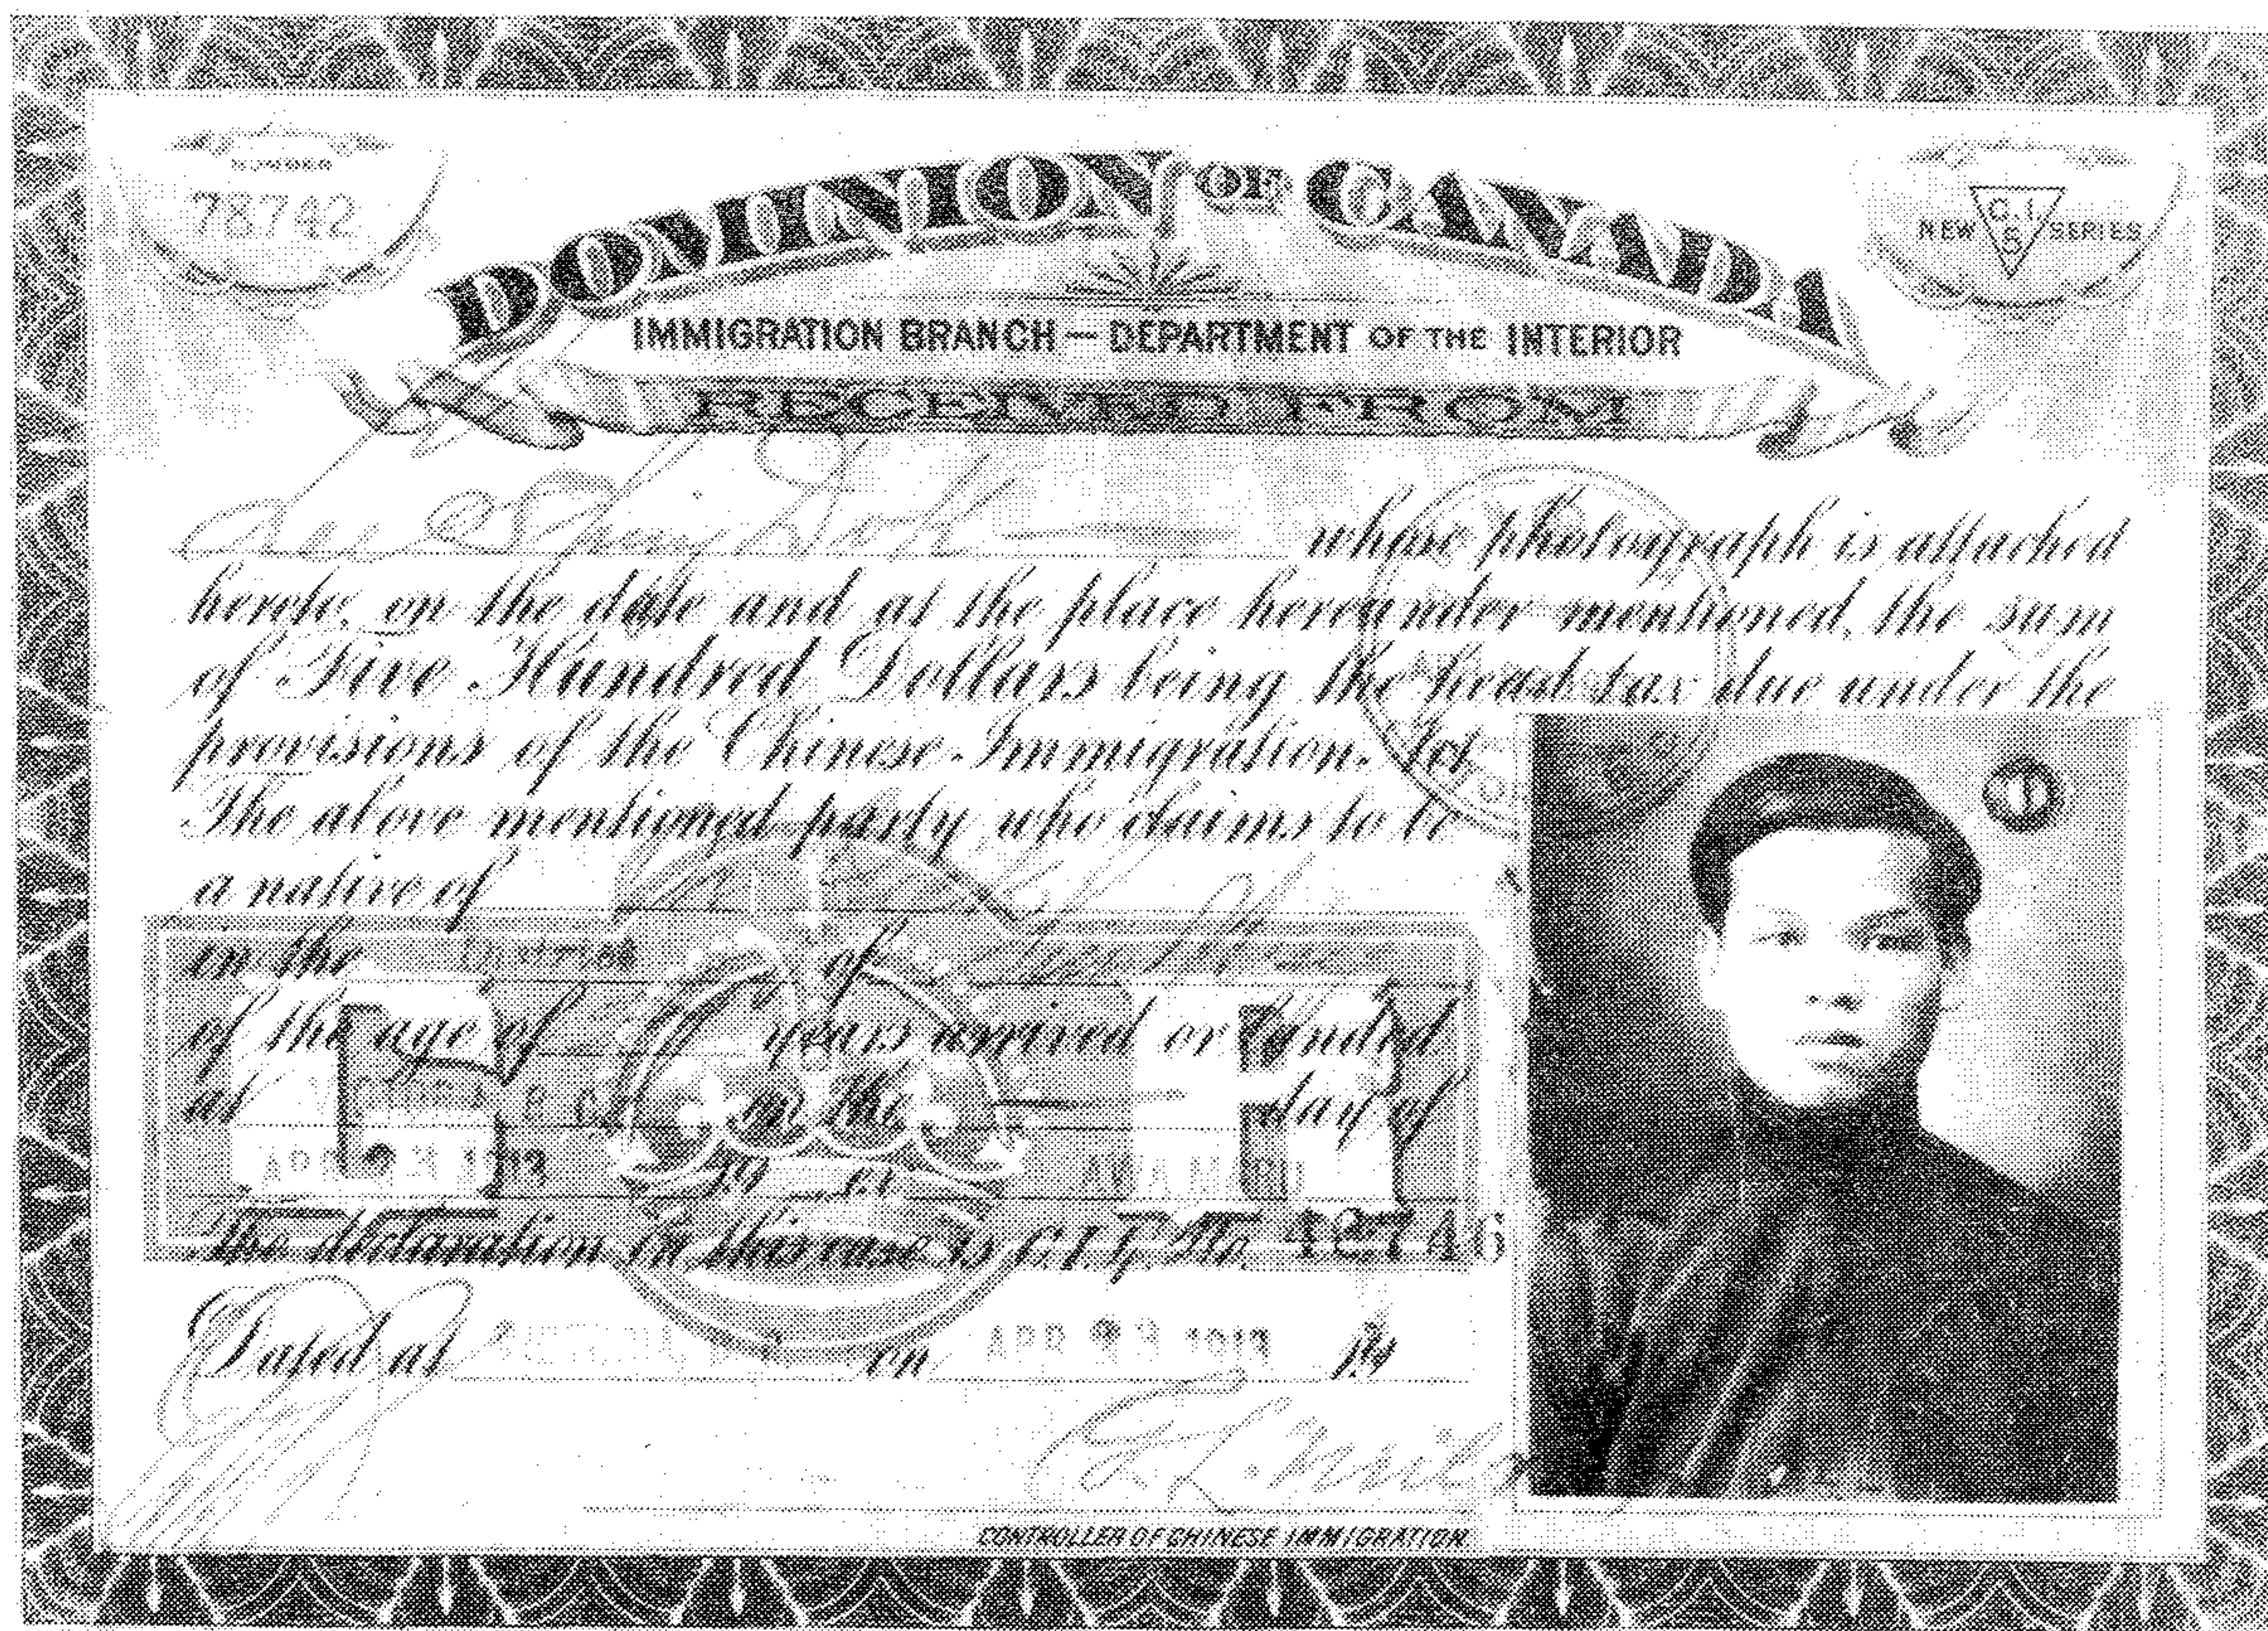 NUMBER
78742
DOMINION OF CANADA
C.I.
NEW SERIES
S
IMMIGRATION BRANCH — DEPARTMENT OF THE INTERIOR
RECEIVED FROM
whose photograph is attached
hereto, on the date and at the place hereunder mentioned, the sum
of Five Hundred Dollars being the head tax due under the
provisions of the Chinese Immigration Act
The above mentioned party who claims to be
a native of
in the District of
of the age of years arrived or landed
at on the day of
APR 23 1913 19
The declaration in this case is C.I.4 No. 42746
Dated at on APR 23 1913 19
CONTROLLER OF CHINESE IMMIGRATION